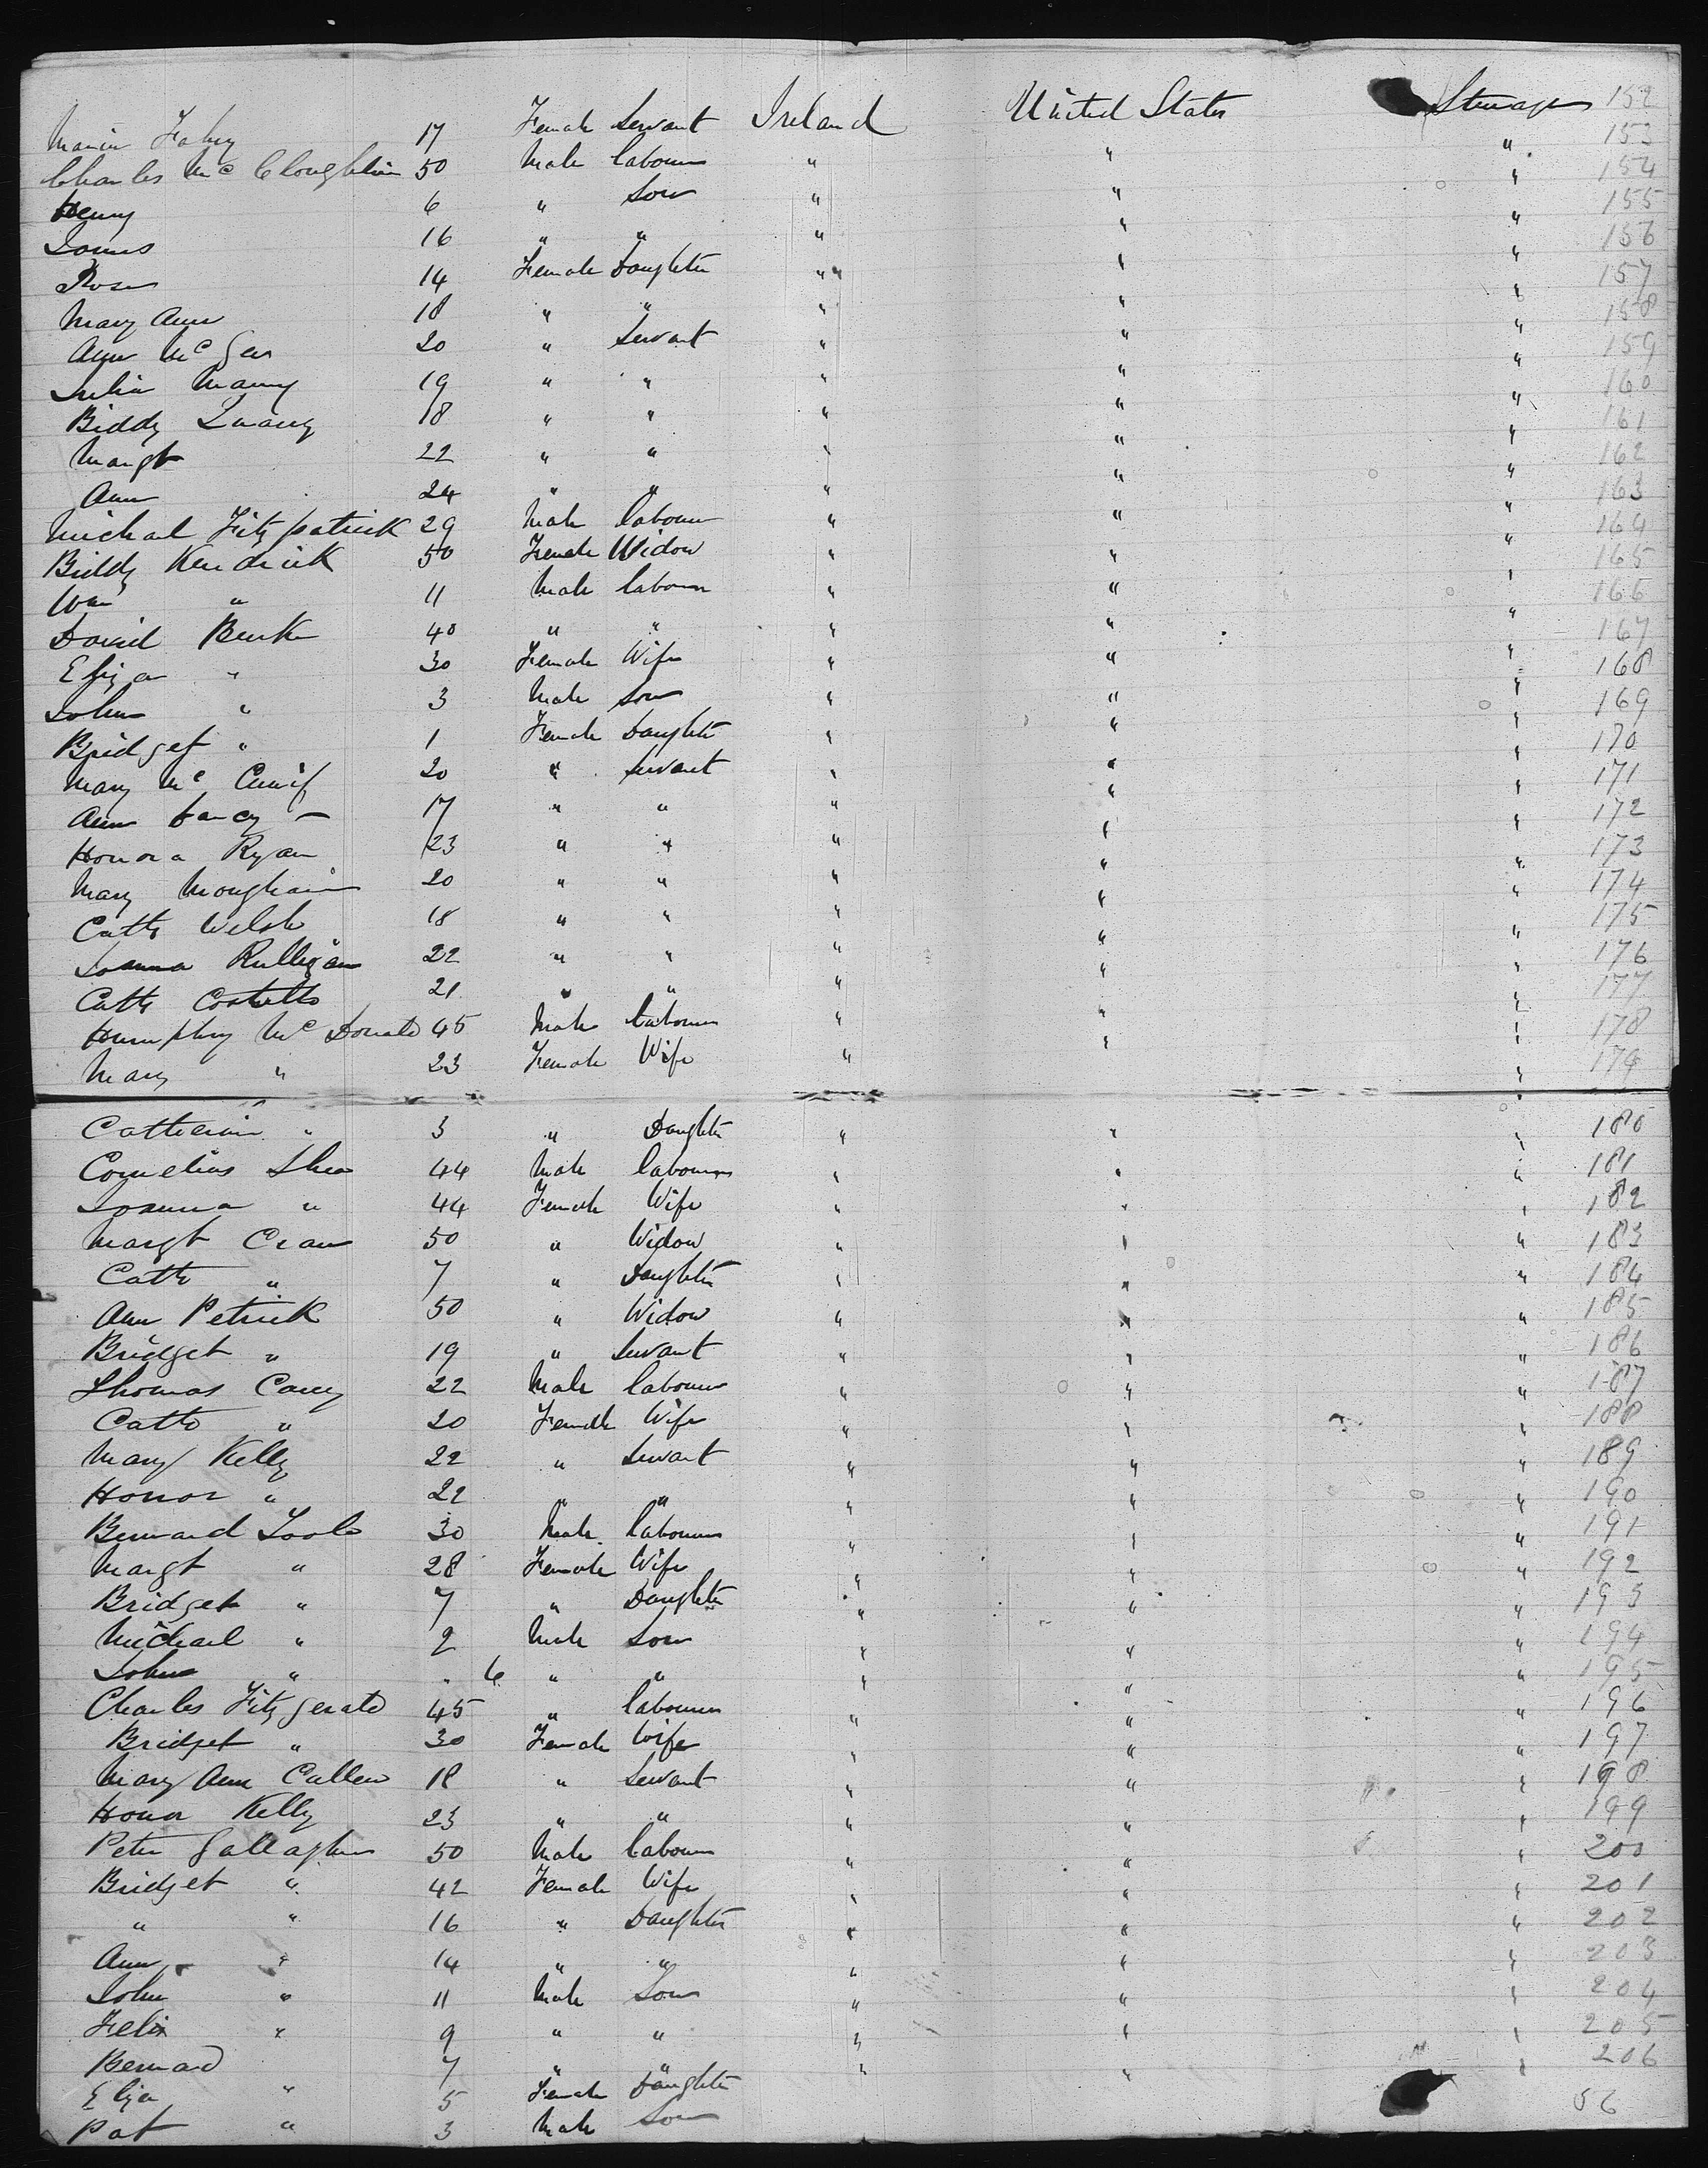 Maria Fahy 17 Female Servant Ireland United States Steerage 152
Charles Mc Cloughlin 50 Male labourer " " " 153
Henry 6 " Son " " " 154
James 16 " " " " " 155
Rose 14 Female Daughter " " " 156
Mary Ann 18 " " " " " 157
Ann Mc Gee 20 " Servant " " " 158
Julia Manny 19 " " " " " 159
Biddy 18 " " " " " 160
Margt 22 " " " " " 161
Ann 24 " " " " " 162
Michael Fitzpatrick 29 Male labourer " " " 163
Biddy Kendrick 50 Female Widow " " " 164
Wm " 11 Male labourer " " " 165
David Burke 40 " " " " " 166
Eliza " 30 Female Wife " " " 167
John " 3 Male Son " " " 168
Bridget " 1 Female Daughter " " " 169
Mary Mc 20 " Servant " " " 170
Ann Darcy 17 " " " " " 171
Honora Ryan 23 " " " " " 172
Mary Moughain 20 " " " " " 173
Cathe Welsh 18 " " " " " 174
Joanna Rulligan 22 " " " " " 175
Cathe Costello 21 " " " " " 176
Humphry Mc Donald 45 Male labourer " " " 177
Mary " 23 Female Wife " " " 178
179
Catherine " 3 " Daughter " " " 180
Cornelius Shea 44 Male labourer " " " 181
Joanna " 44 Female Wife " " " 182
Margt Cran 50 " Widow " " " 183
Cathe " 7 " Daughter " " " 184
Ann Petrick 50 " Widow " " " 185
Bridget " 19 " Servant " " " 186
Thomas Carey 22 Male labourer " " " 187
Cathe " 20 Female Wife " " " 188
Mary Kelly 22 " Servant " " " 189
Honor " 22 " " " " " 190
Bernard Toole 30 Male labourer " " " 191
Margt " 28 Female Wife " " " 192
Bridget " 7 " Daughter " " " 193
Michael " 2 Male Son " " " 194
John " . 6 " " " " " 195
Charles Fitzgerald 45 " labourer " " " 196
Bridget " 30 Female Wife " " " 197
Mary Ann Cullen 18 " Servant " " " 198
Honor Kelly 23 " " " " " 199
Peter Gallagher 50 Male labourer " " " 200
Bridget " 42 Female Wife " " " 201
" " 16 " Daughter " " " 202
Ann " 14 " " " " " 203
John " 11 Male Son " " " 204
Felix " 9 " " " " " 205
Bernard 7 " " " " " 206
Eliza " 5 Female Daughter
Pat " 3 Male Son
56